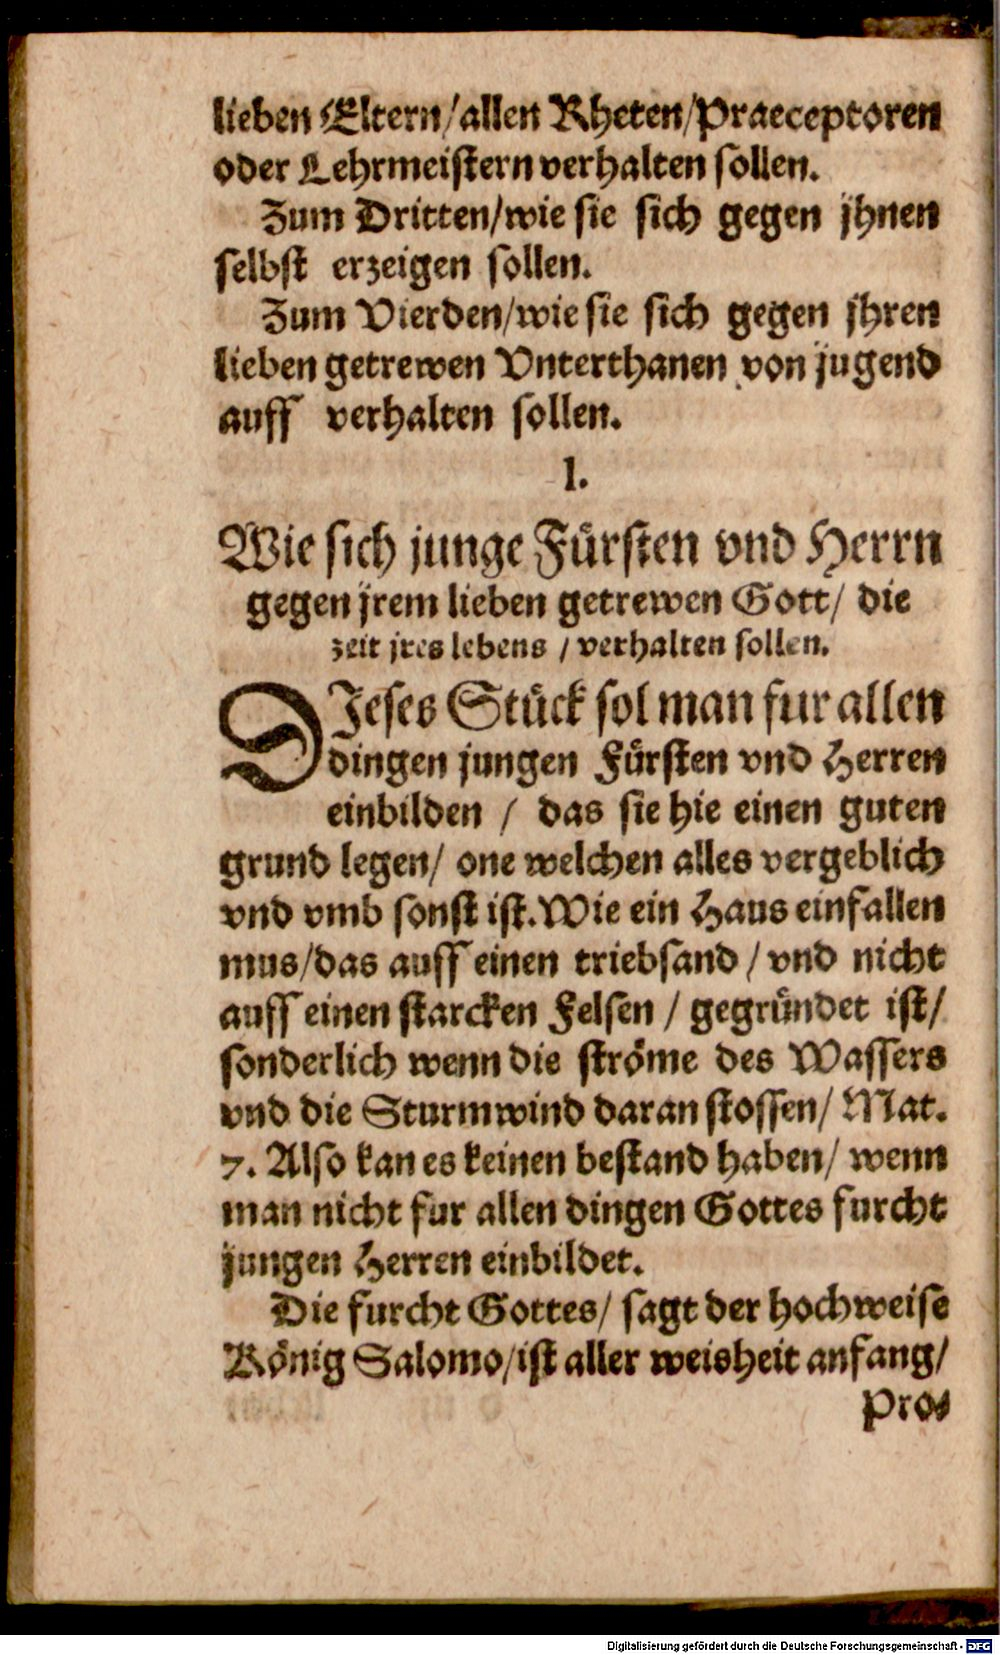 lieben Eltern/allen Rheten/Praeceptoren
oder Lehrmeistern verhalten sollen.
Zum Dritten/wie sie sich gegen jhnen
selbst erzeigen sollen.
Zum Vierden/wie sie sich gegen jhren
lieben getrewen Vnterthanen von jugend
auff verhalten sollen.
I.
Wie sich junge Fürsten vnd Herrn
gegen jrem lieben getrewen Gott/ die
zeit jres lebens / verhalten sollen.
DJeses Stück sol man fur allen
dingen jungen Fürsten vnd Herren
einbilden / das sie hie einen guten
grund legen/ one welchen alles vergeblich
vnd vmb sonst ist. Wie ein Haus einfallen
mus/das auff einen triebsand / vnd nicht
auff einen starcken Felsen / gegründet ist/
sonderlich wenn die ströme des Wassers
vnd die Sturmwind daran stossen/ Mat.
7. Also kan es keinen bestand haben/ wenn
man nicht fur allen dingen Gottes furcht
jungen Herren einbildet.
Die furcht Gottes/ sagt der hochweise
König Salomo/ist aller weisheit anfang/
Pro-
Digitalisierung gefördert durch die Deutsche Forschungsgemeinschaft - DFG